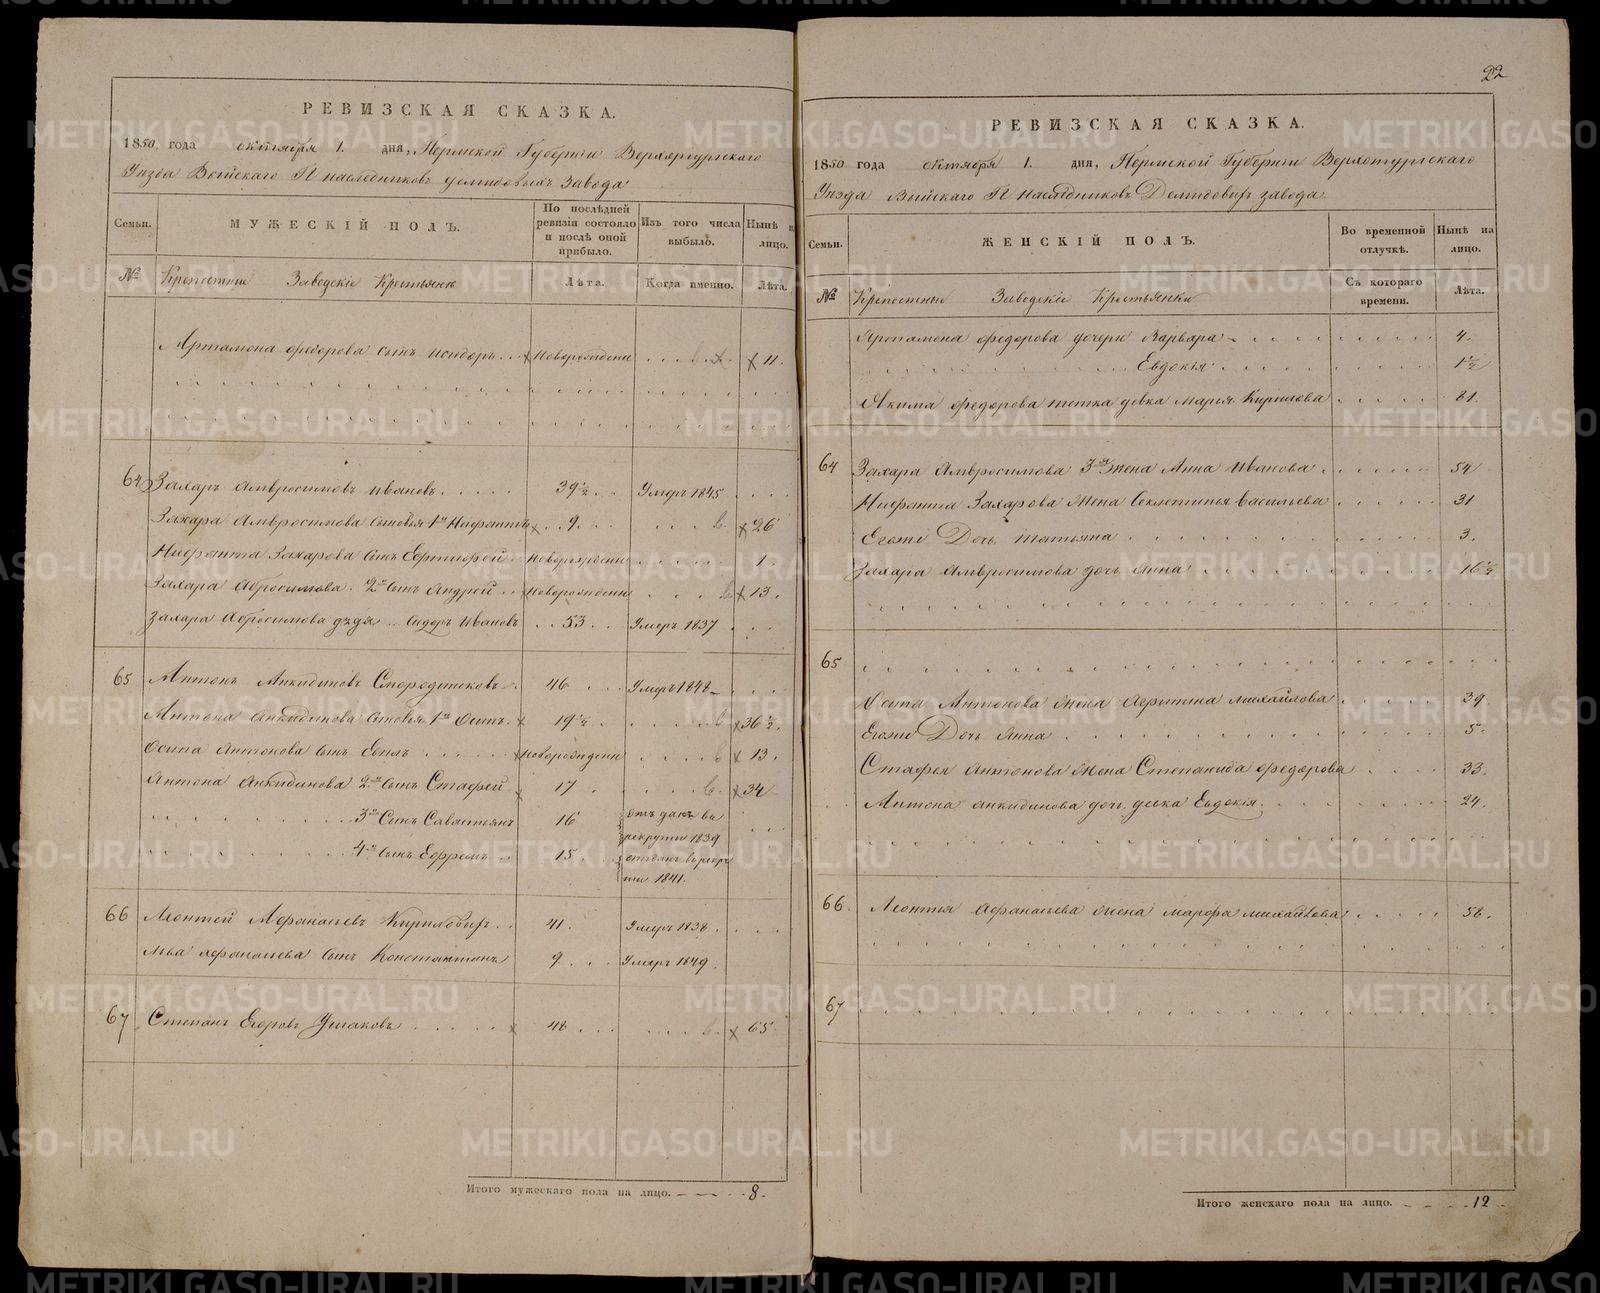 РЕВИЗСКАЯ СКАЗКА.
1850, года октября 1. дня, Пермской Губернiи Верхотурскаго
Уезда Выйскаго Г.п наследниковъ демидовыхъ Завода
Семьи. МУЖЕСКІЙ ПОЛЪ. По послѣдней ревизіи состояло и послѣ оной прибыло. Изъ того числа выбыло. Нынѣ на лицо.
№ Крепостные Заводскiе Крестьяне Лѣта. Когда именно. Лѣта.
Артамона федорова сынъ исидоръ новорожденн 11.
64 Захаръ амвросимовъ ивановъ 39½ Умеръ 1845
Захара амвросимова сыновья 1й Ниѳантъ 9. 26
Ниѳанта Захарова сынъ новорожденн 1.
Захара абросимова 2й сынъ Андрей новорожденн 13.
Захара абросимова дядя Сидоръ Ивановъ 53 Умеръ 1837
65 Антонъ Анкидиновъ 46 Умеръ 1848
Антона анкидинова сыновья 1й Осипъ 19½ 36½.
Осипа антонова сынъ новорожденн 13.
Антона анкидинова 2й сынъ Стафей 17 34
3й Сынъ Савастьянъ 16 отъ данъ въ рекруты 1839
4й сынъ Ефремъ 15 отъданъ въ рекруты 1841.
66 Леонтей Афанасьевъ 41. Умеръ 1838.
Льва афанасьева сынъ Константинъ 9 Умеръ 1849.
67 Степанъ Егоровъ Ушаковъ 48 65
Итого мужескаго пола на лицо. 8.
22
РЕВИЗСКАЯ СКАЗКА.
1850 года октября 1. дня, Пермской Губернiи Верхотурскаго
Уезда Выйскаго Г.п наследниковъ Демидовыхъ завода
Семьи. ЖЕНСКІЙ ПОЛЪ. Во временной отлучкѣ. Нынѣ на лицо.
№ Крепостные Заводскiе Крестьянки Съ котораго времени. Лѣта.
Артамона федорова дочери Варвара 4.
Евдокiя 1½
Якима федорова тетка девка Марья Кирилова 81.
64 Захара амвросимова 3я жена Анна иванова 54
Ниѳанта Захарова жена Секлетинья васильева 31
Егоже Дочь татьяна 3.
Захара Амвросимова дочь Анна 16½
65
Осипа Антонова жена михайлова 39.
Егоже Дочь Анна 5.
Стафея антонова жена Степанида федорова 33.
Антона анкидинова дочь девка Евдокiя 24.
66. Леонтья афанасьева жена марфа михайлова 56.
67
Итого женскаго пола на лицо. 12
METRIKI.GASO-URAL.RU